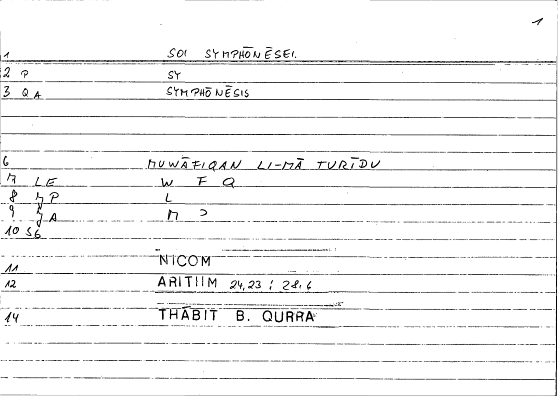 1
1 SOI SYMPHŌNĒSEI.
2 P SY
3 QA SYMPHŌNĒSIS
6 MUWĀFIQAN LI-MĀ TURĪDU
7 LE W F Q
8 P L
9 A M
10 S6
11 NICOM
12 ARITIIM 24,23 ; 28.6
14 THĀBIT B. QURRA